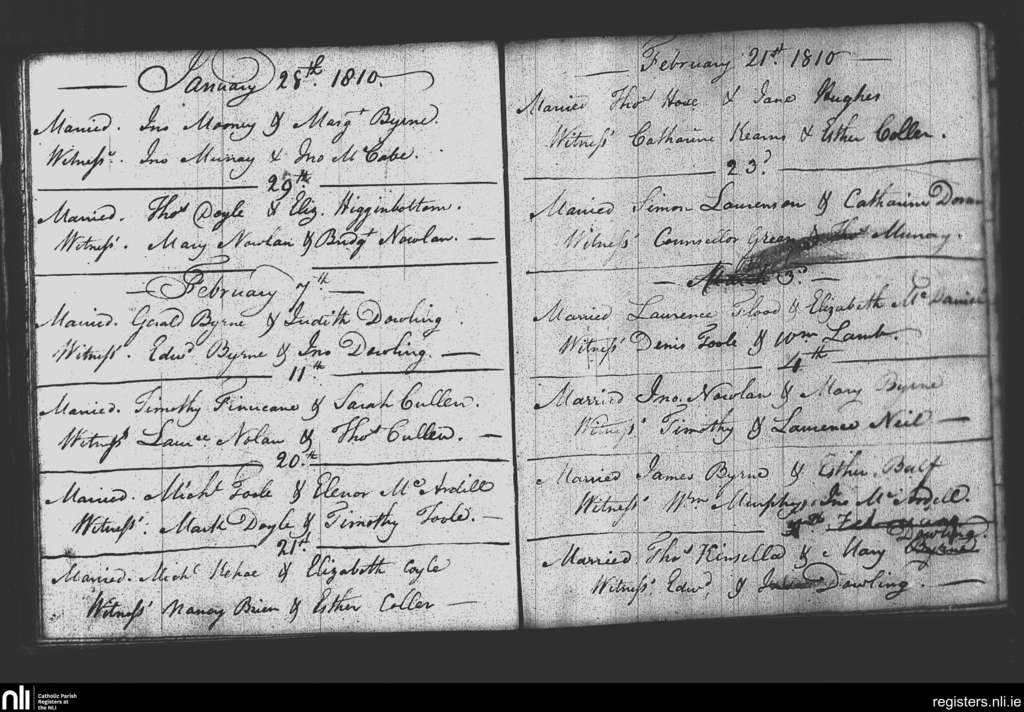 January 28th. 1810.
Married. Jno Mooney & Margt Byrne.
Witness. Jno Murray & Jno McCabe.
29th.
Married. Thos Doyle & Eliz. Higginbottom.
Witness. Mary Nowlan & Bridgt Nowlan.
February 7th
Married. Gerald Byrne & Judith Dowling
Witness. Edwd Byrne & Jno Dowling.
11th
Married. Timothy Finucane & Sarah Cullen.
Witness Laurce Nolan & Thos Cullen.
20.th
Married. Michl Toole & Elenor McArdill
Witness. Mark Doyle & Timothy Toole.
21st
Married. Michl Kehoe & Elizabeth Coyle
Witness Nancy Brien & Esther Coller
February 21st. 1810
Married Thos & Jane Hughes
Witness Catharine Kearns & Esther Coller.
23d
Married Simon Laurenson & Catharine Doran
Witness Counsellor Green & Thos Murray.
March 3d
Married Laurence Flood & Elizabeth Mc
Witness Denis Toole & Wm Lamb.
4th
Married Jno. Nowlan & Mary Byrne
Witness Timothy & Laurence Neil
Married James Byrne & Esther Bulf
Witness Wm Murphy, Jno McArdell.
February
Dowling.
Married Thos Kinsella & Mary Byrne
Witness. Edwd. & Dowling.
nli
Catholic Parish
Registers at
the NLI
registers.nli.ie